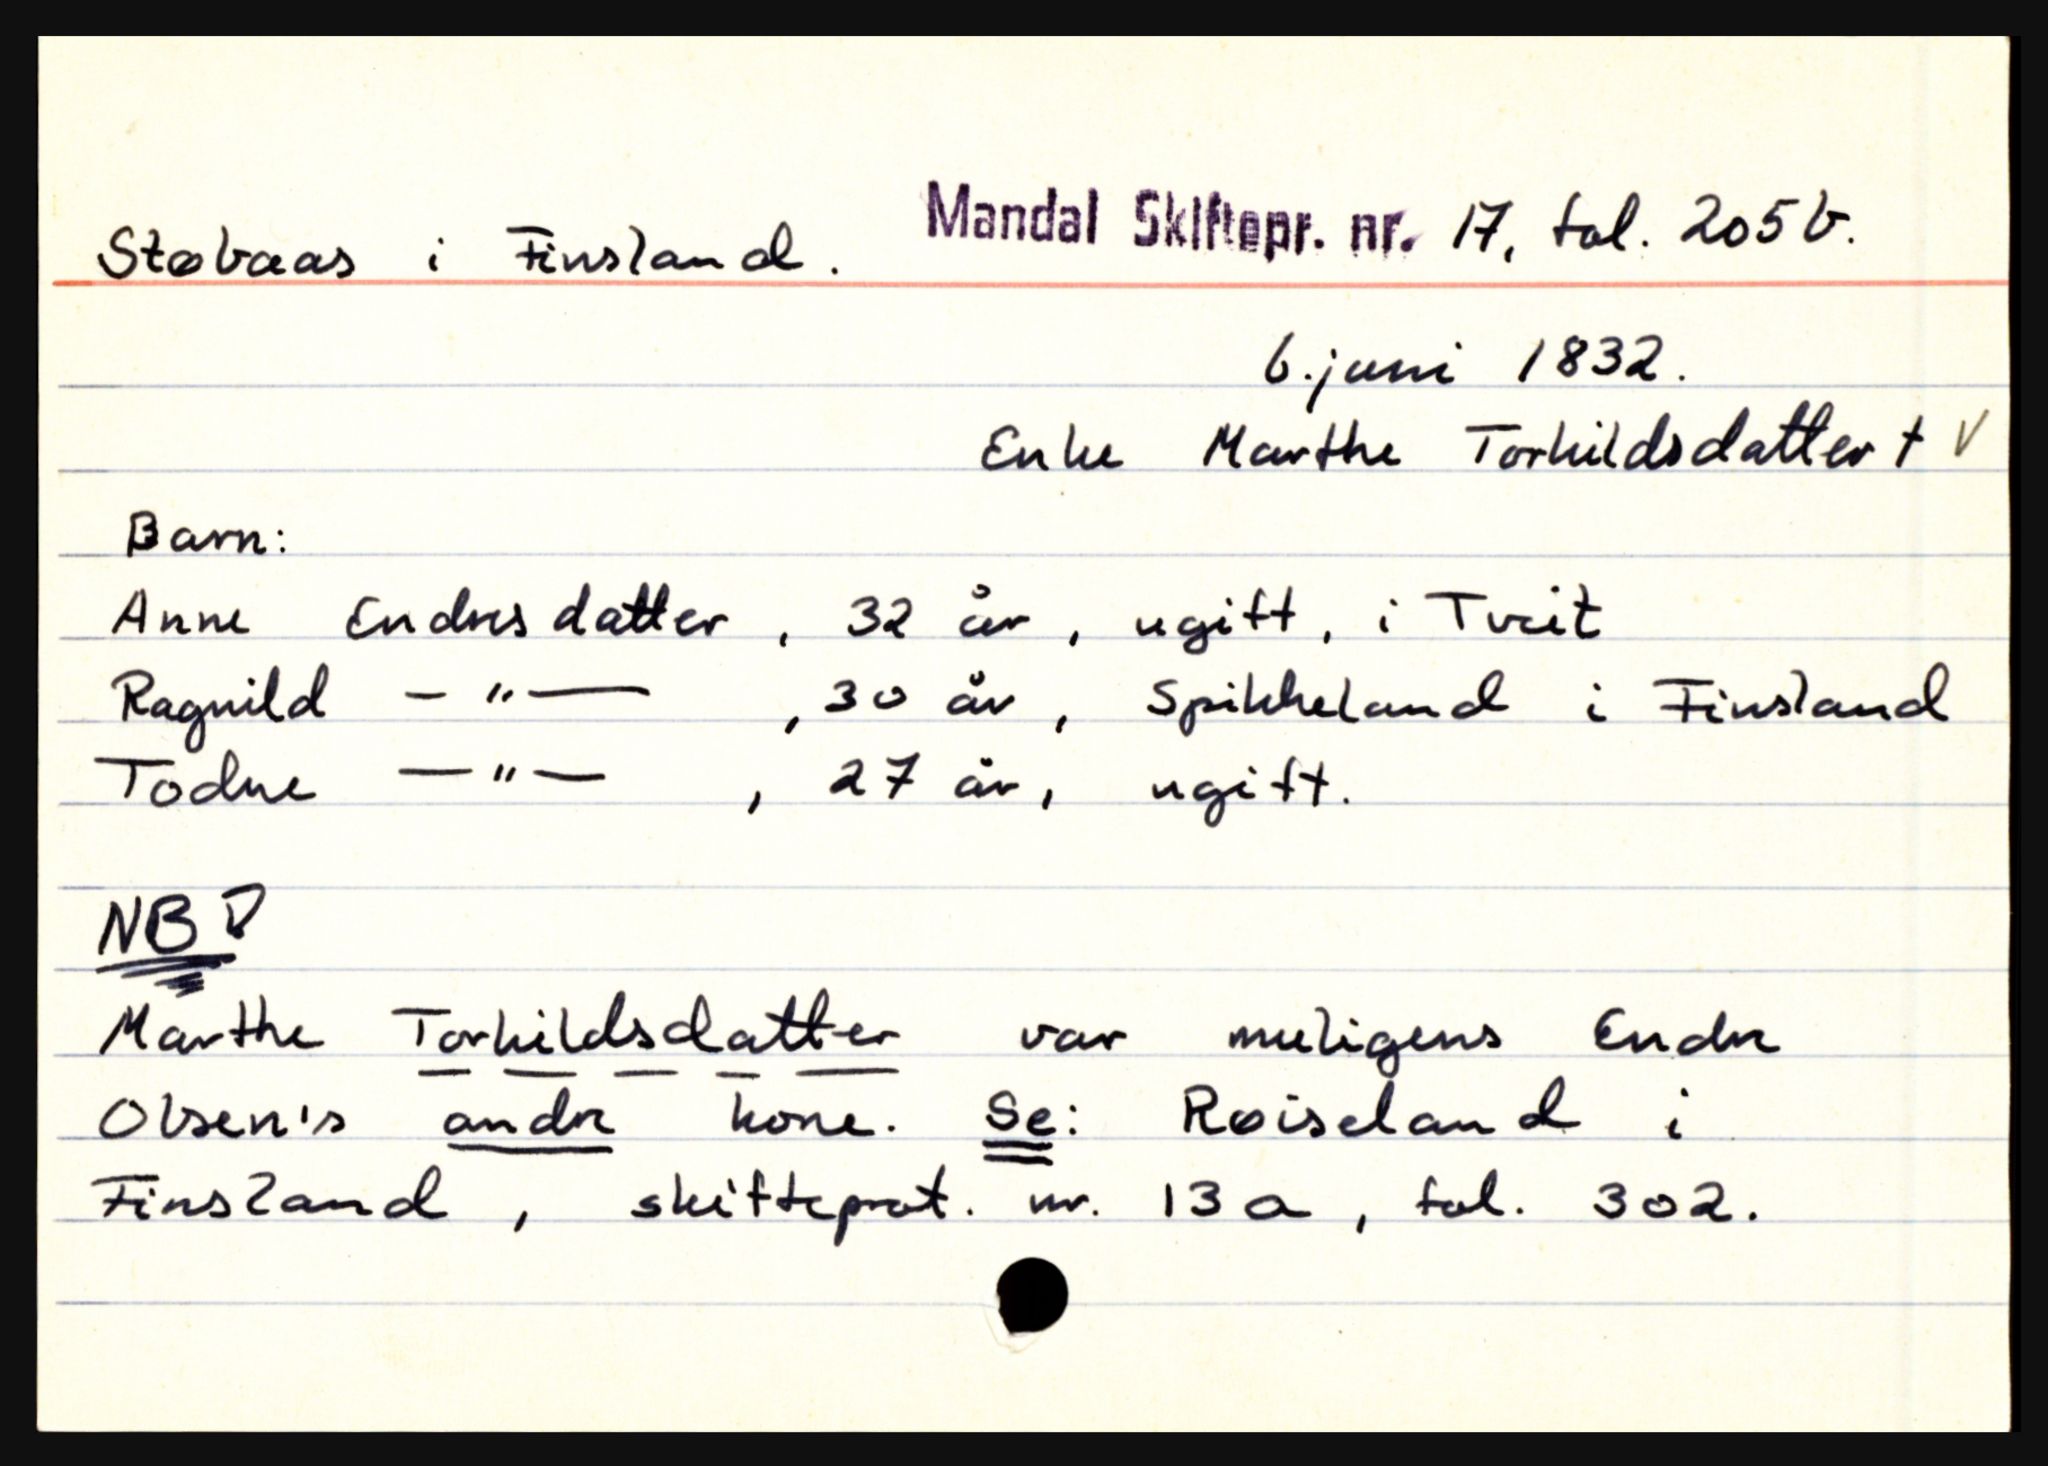 Støbaas i Finsland. Mandal Skiftepr. nr. 17, fol. 205b.
6. juni 1832.
Enke Marthe Torkildsdatter † V
Barn:
Anne Endresdatter, 32 år, ugift, i Tveit
Ragnild — " —, 30 år, Spikkeland i Finsland
Todne — " —, 27 år, ugift.
NB!
Marthe Torkildsdatter var muligens Endre
Olsen's andre kone. Se: Røiseland i
Finsland, skifteprot. nr. 13a, fol. 302.